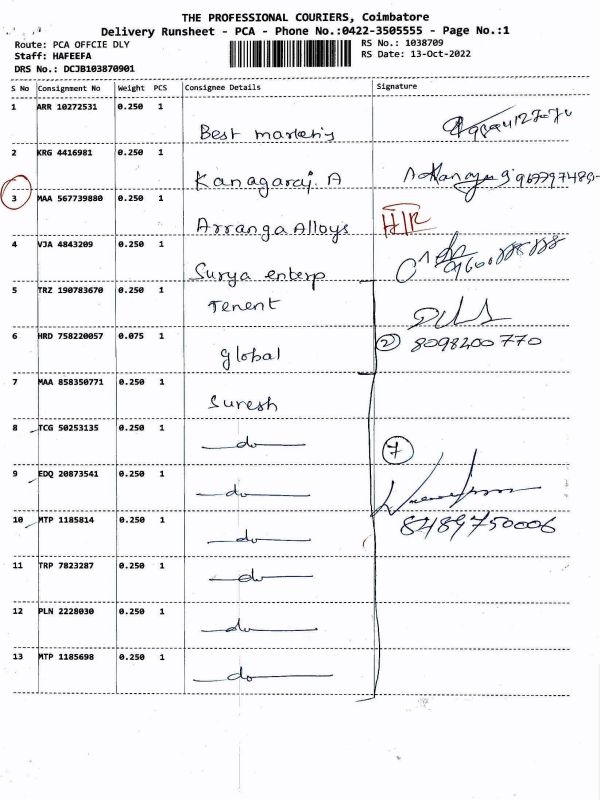 THE PROFESSIONAL COURIERS, Coimbatore
Delivery Runsheet - PCA - Phone No.:0422-3505555 - Page No.:1
Route: PCA OFFCIE DLY
Staff: HAFEEFA
DRS No.: DCJB103870901
RS No.: 1038709
RS Date: 13-Oct-2022
S No Consignment No Weight PCS Consignee Details Signature
1 ARR 10272531 0.250 1 Best marketing
2 KRG 4416981 0.250 1 Kanagaraj. A
3 MAA 567739880 0.250 1 Arranga Alloys
4 VJA 4843209 0.250 1 Surya enterp
5 TRZ 190783670 0.250 1 Tenent
6 HRD 758220057 0.075 1 global ② 8098200770
7 MAA 858350771 0.250 1 Suresh
8 TCG 50253135 0.250 1 do ⑦
9 EDQ 20873541 0.250 1 do
10 MTP 1185814 0.250 1 do 8489750006
11 TRP 7823287 0.250 1 do
12 PLN 2228030 0.250 1 do
13 MTP 1185698 0.250 1 do